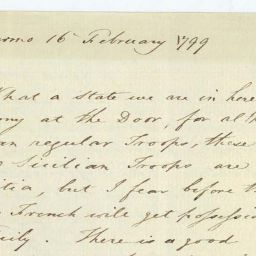 ormo 16 February 1799
What a State we are in here
my at the Door, for al
an regular Troops, these
Sicilian Troops are
itia, but I fear before t
French will get possessi
ily. There is a good